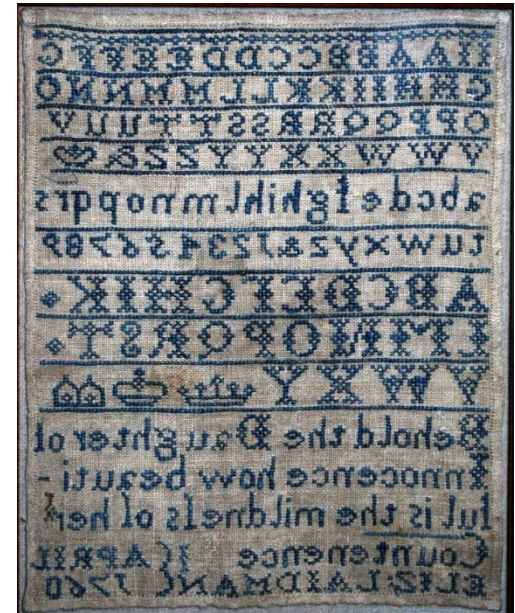 AABBCCDDEEFFG
GHHIIKKLLMMNNO
OPPQQRRSSTTUUV
VWWXXYYZZ&
abcdefghiklmnopqrs
tuvwxyz&123456789
ABCDEFGHIK
LMNOPQRST
VWXY
Behold the Daughter of
Innocence how beauti-
ful is the mildness of her
Countenence 1 APRIL
ELIZ: LAIDMAN 1760